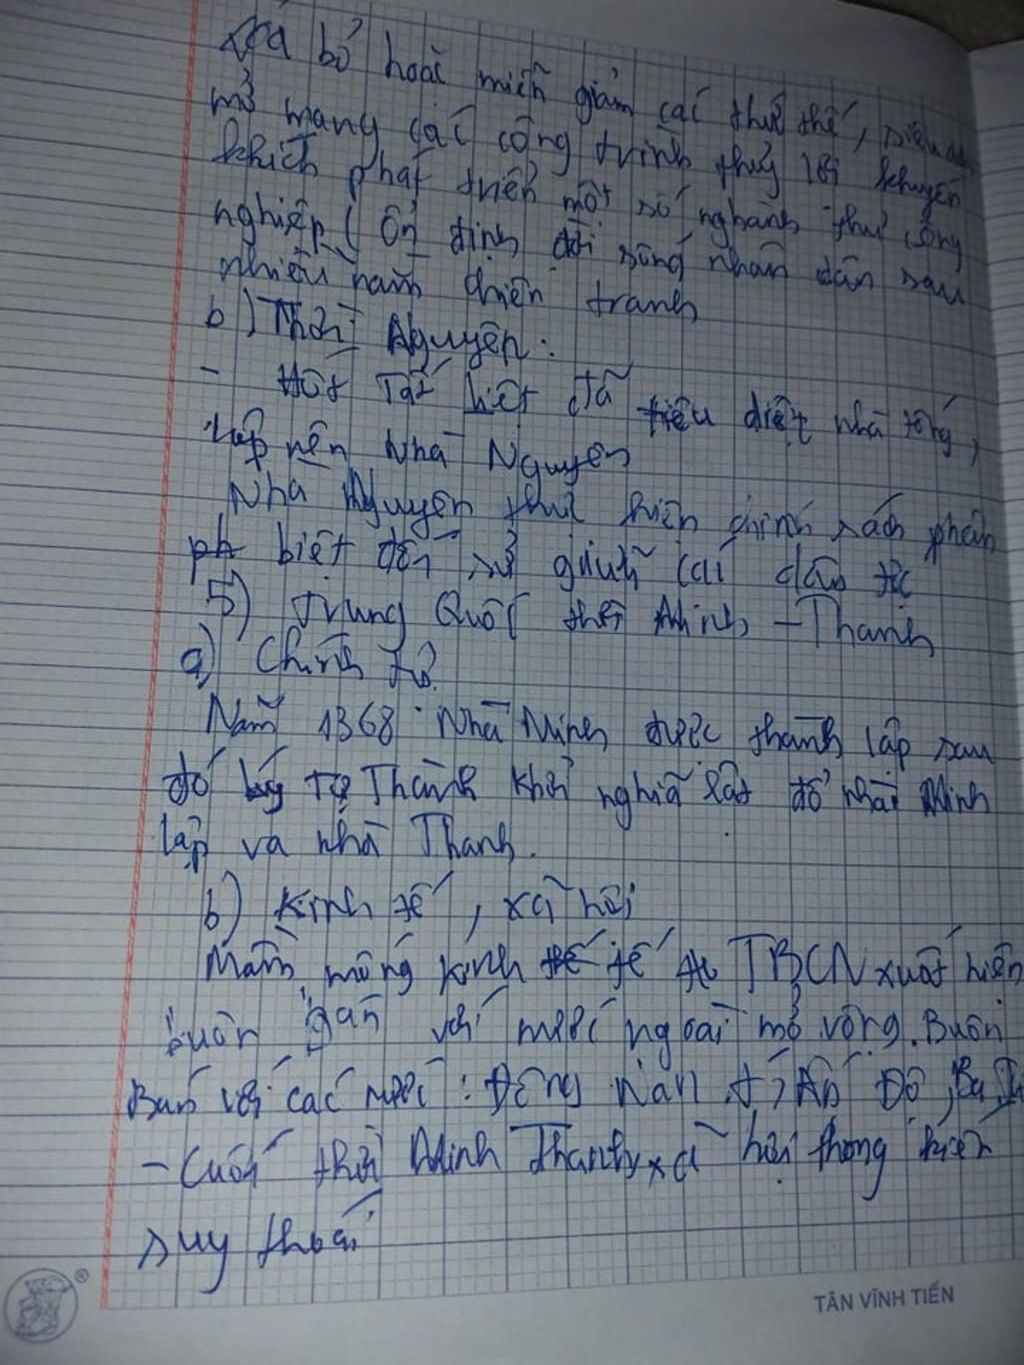 Xóa bỏ hoặc miễn giảm các thuế thế,
mở mang các công trình thuỷ lợi khuyến
khích phát triển một số nghành thủ công
nghiệp ( ổn định đời sống nhân dân sau
nhiều năm chiến tranh
b) Thời Nguyên:
- Hốt Tất Liệt đã tiêu diệt nhà tống,
lập nên Nhà Nguyên
Nhà Nguyên thực hiện chính sách phân
ph biệt đối sử giữa các dân tộc
5) Trung Quốc thời Minh - Thanh
a) Chính trị
Năm 1368 Nhà Minh được thành lập sau
đó Lý Tự Thành khởi nghĩa lật đổ nhà Minh
lập ra nhà Thanh.
b) Kinh tế, xã hội
Mầm mống kinh tế tế TBCN xuất hiện
buôn với nước ngoài mở rộng. Buôn
Bán với các nước: Đông Nam Á, Ấn Độ, Ba
- Cuối thời Minh Thanh, xã hội phong kiến
suy thoái
TÂN VĨNH TIẾN
®